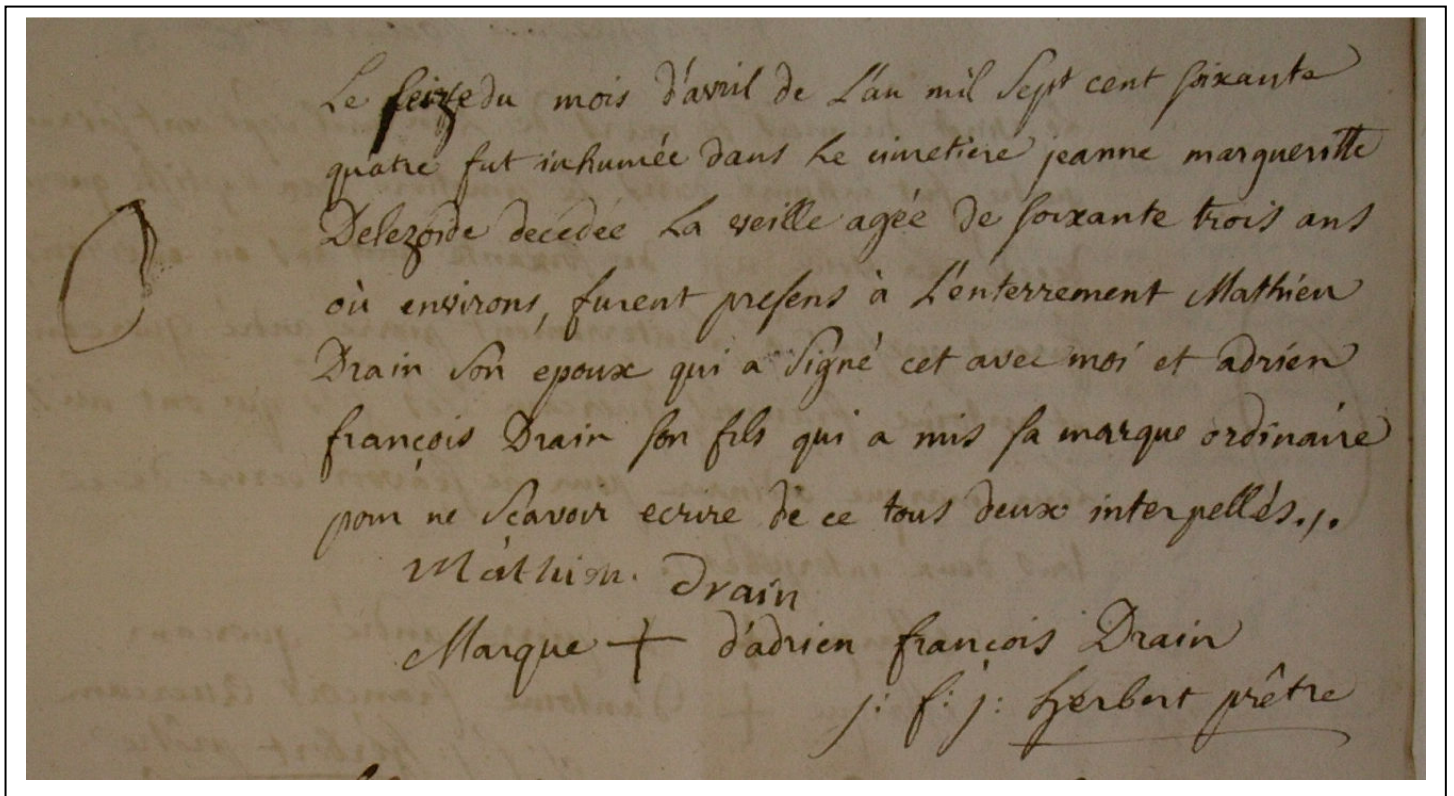 Le seize du mois d'avril de L'an mil Sept cent soixante
quatre fut inhumée dans Le cimetiere jeanne margueritte
Delezoide decedée La veille agée de soixante trois ans
où environs, furent presens à L'enterrement Mathieu
Drain son epoux qui a signé cet avec moi et adrien
françois Drain son fils qui a mis sa marque ordinaire
pour ne scavoir ecrire de ce tous deux interpellés./.
Mathieu. Drain
Marque + d'adrien françois Drain
j: f: j: herbert prêtre